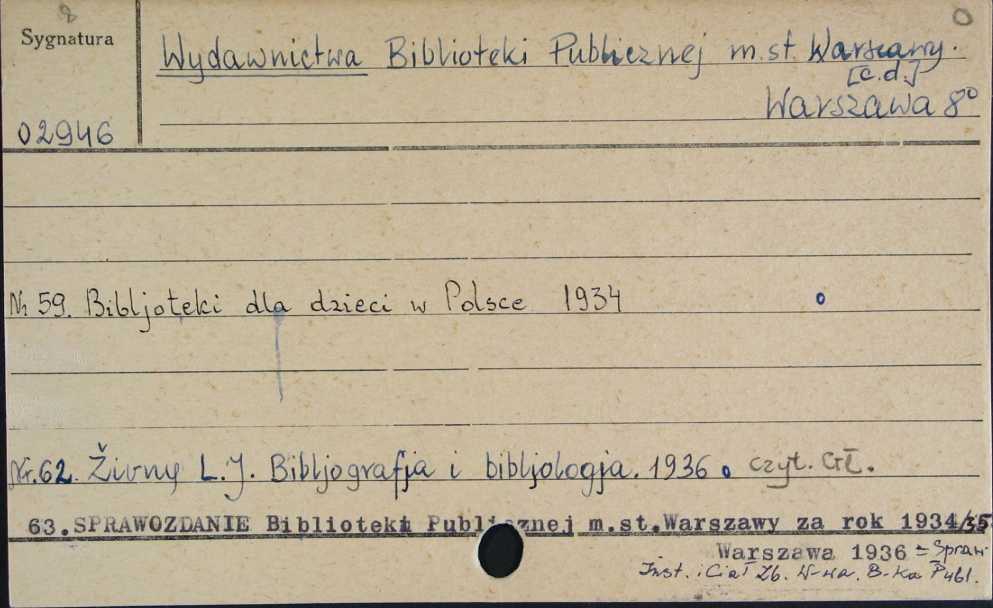 8
Sygnatura
Wydawnictwa Biblioteki Publicznej m.st. Warszawy.
[c.d.]
Warszawa 8°
02946
Nr 59. Bibljoteki dla dzieci w Polsce 1934
Nr.62. Živny L.J. Bibljografja i bibljologja. 1936 czyt. Gł.
63.SPRAWOZDANIE Biblioteki Publicznej m.st.Warszawy za rok 1934/35
Warszawa 1936 = Spraw.
Inst. i Ciał Zb. W-wa. B-ka Publ.